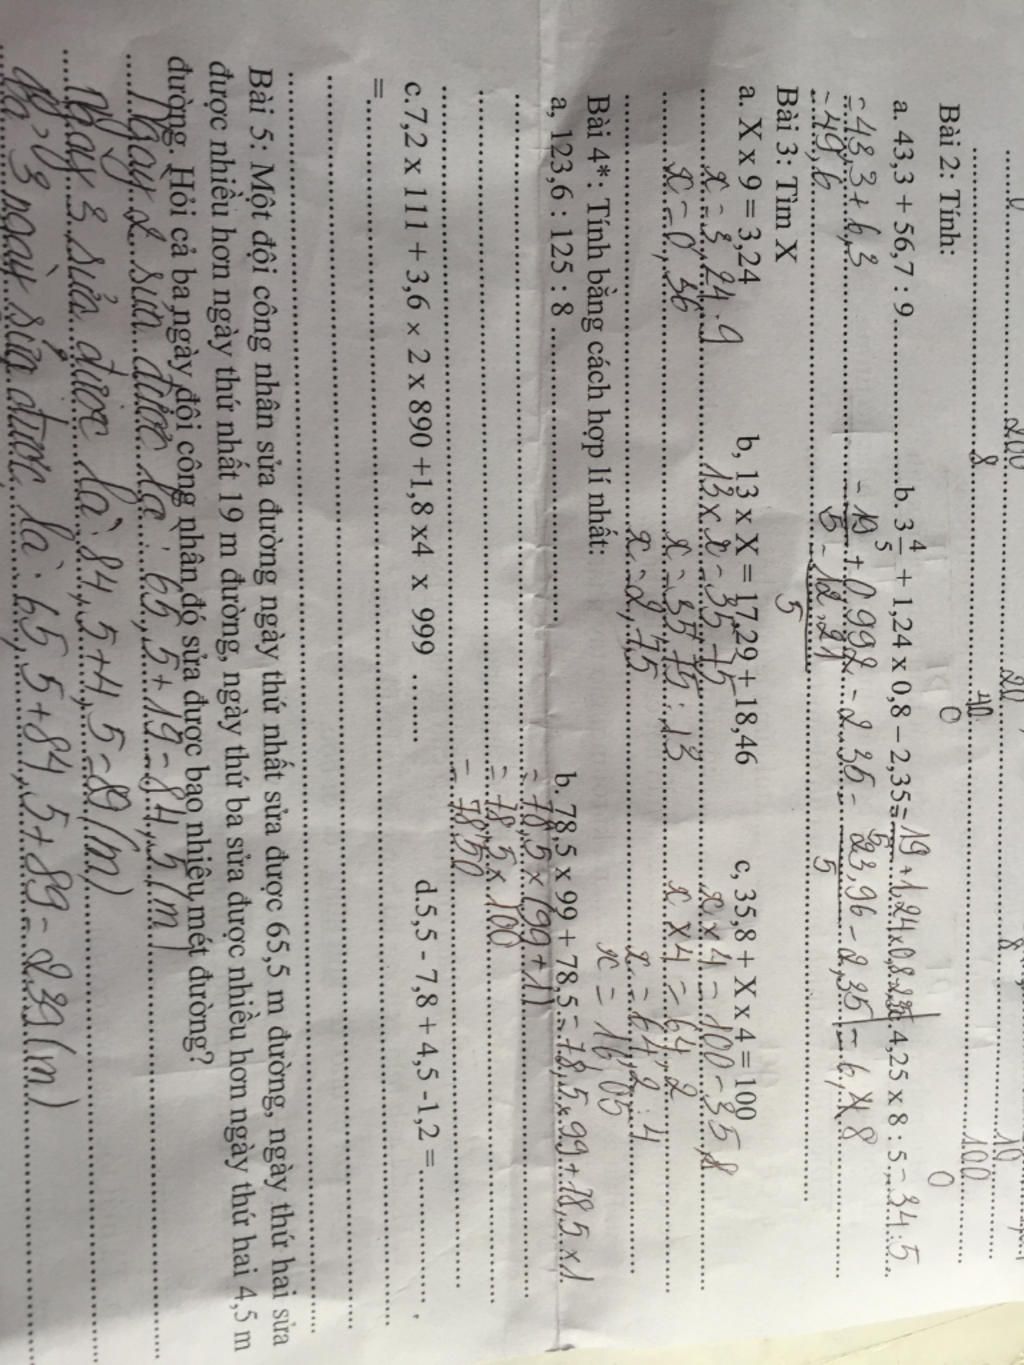 200 20 10
8 40 100
Bài 2: Tính: 0 0
a. 43,3 + 56,7 : 9 b. 3 4/5 + 1,24 x 0,8 – 2,35 = 19/5 + 1,24 x 0,8 - 2,35 c. 4,25 x 8 : 5 = 34 : 5
= 43,3 + 6,3 = 19/5 + 0,992 - 2,35 = 23,96/5 - 2,35 = 6,8
= 49,6 = 12,21/5
Bài 3: Tìm X
a. X x 9 = 3,24 b, 13 x X = 17,29 + 18,46 c, 35,8 + X x 4 = 100
x = 3,24 : 9 13 x x = 35,75 x x 4 = 100 - 35,8
x = 0,36 x = 35,75 : 13 x x 4 = 64,2
x = 2,75 x = 64,2 : 4
x = 16,05
Bài 4*: Tính bằng cách hợp lí nhất:
a, 123,6 : 125 : 8 b. 78,5 x 99 + 78,5 = 78,5 x 99 + 78,5 x 1
= 78,5 x (99 + 1)
= 78,5 x 100
= 7850
c.7,2 x 111 + 3,6 x 2 x 890 +1,8 x4 x 999 d.5,5 - 7,8 + 4,5 -1,2 =
=
Bài 5: Một đội công nhân sửa đường ngày thứ nhất sửa được 65,5 m đường, ngày thứ hai sửa
được nhiều hơn ngày thứ nhất 19 m đường, ngày thứ ba sửa được nhiều hơn ngày thứ hai 4,5 m
đường. Hỏi cả ba ngày đội công nhân đó sửa được bao nhiêu mét đường?
Ngày 2 sửa được là : 65,5 + 19 = 84,5 (m)
Ngày 3 sửa được là : 84,5 + 4,5 = 89 (m)
3 ngày sửa được là : 65,5 + 84,5 + 89 = 239 (m)